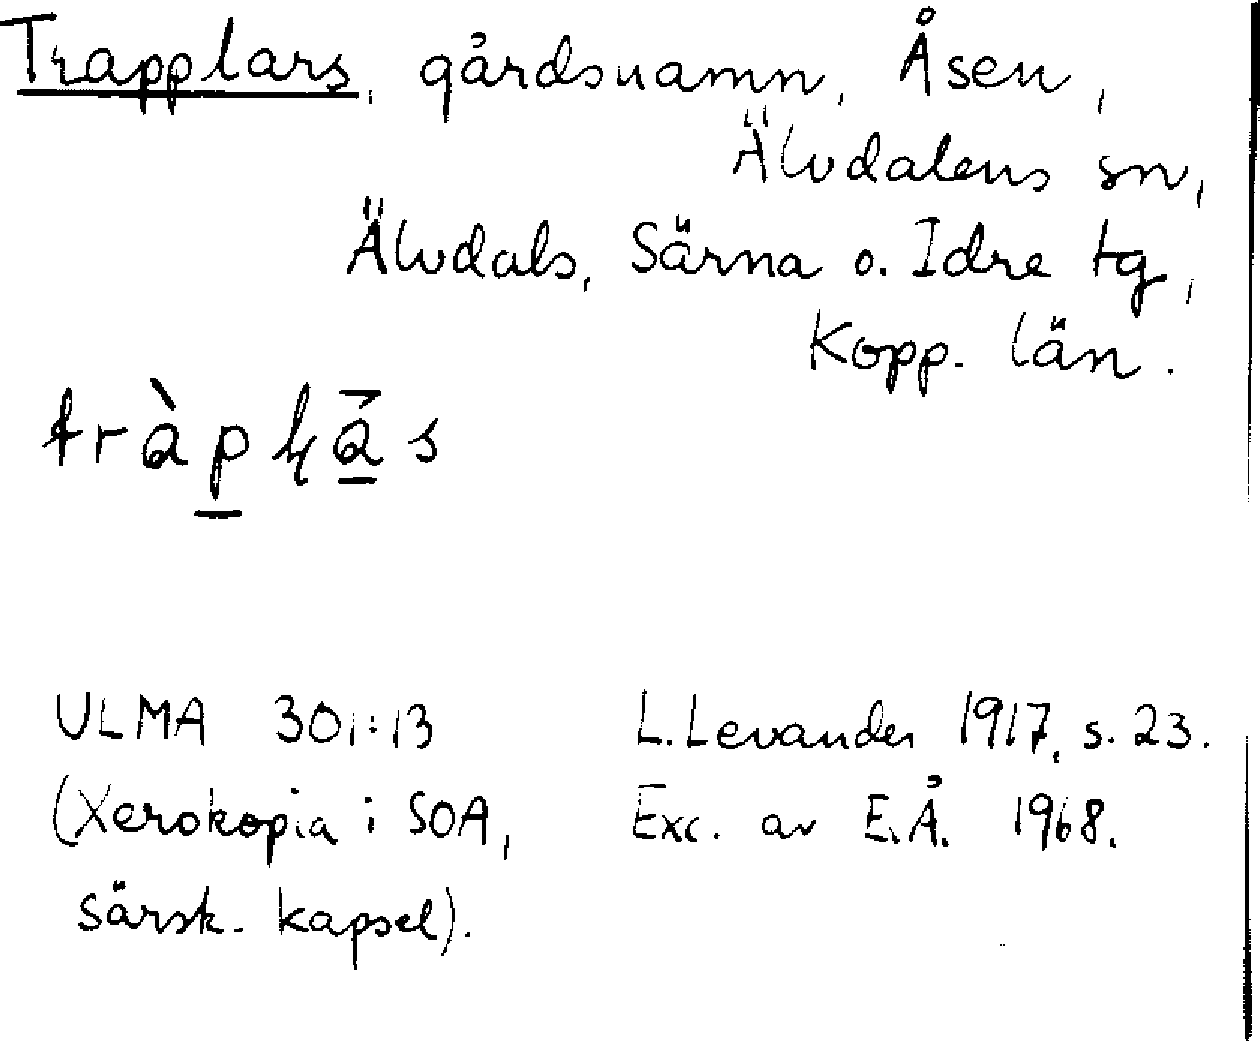 Trapplars, gårdsnamn, Åsen,
Älvdalens sn,
Älvdals, Särna o. Idre tg,
Kopp. län.
ULMA 301:13
(Xerokopia i SOA,
särsk. kapsel).
L. Levander 1917, s. 23.
Exc. av E.Å. 1968.